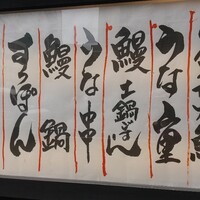 うな重
鰻土鍋ごはん
うな串
鰻鍋
すっぽん